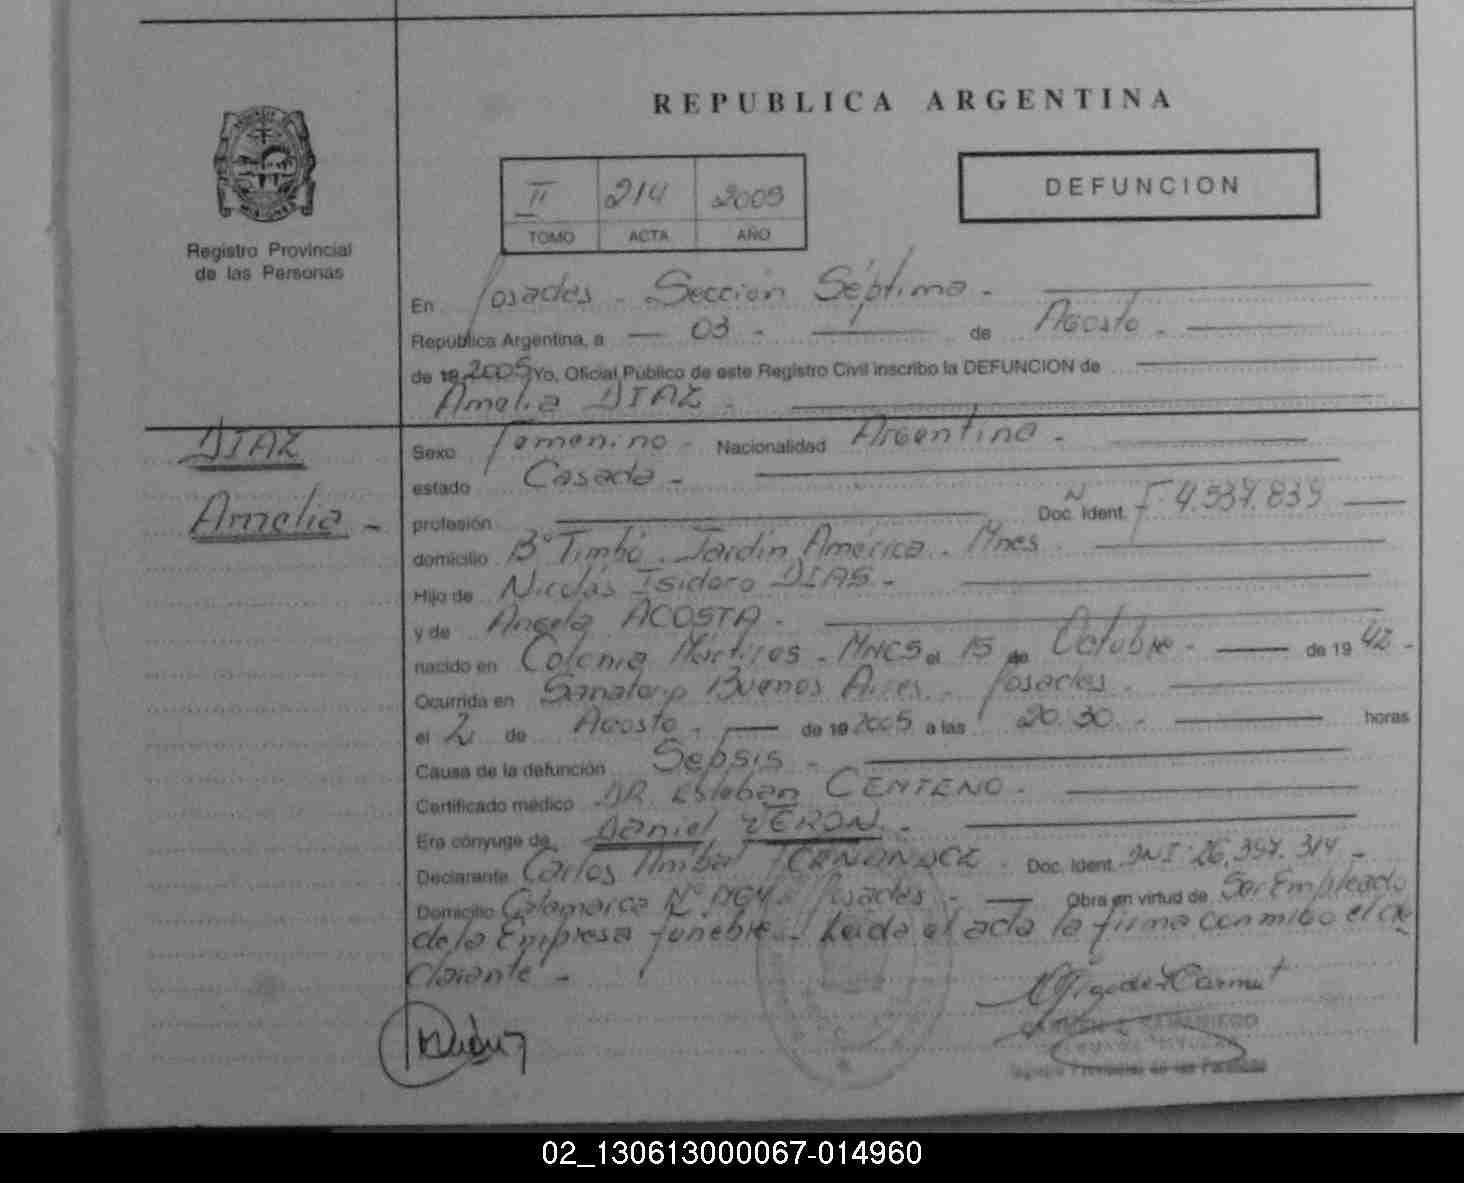 REPUBLICA ARGENTINA
MISIONES
Registro Provincial
de las Personas
II 214 2005
TOMO ACTA AÑO
DEFUNCION
En Posadas - Sección Séptima -
República Argentina, a — 03 - de Agosto -
de 19 2005 Yo, Oficial Público de este Registro Civil inscribo la DEFUNCION de
Amelia DIAZ -
DIAZ
Amelia -
Sexo Femenino - Nacionalidad Argentina -
estado Casada -
profesión Doc. Ident. F 4.537.839
domicilio B° Timbó - Jardín América - Mnes
Hijo de Nicolás Isidoro DIAS -
y de Angela ACOSTA -
nacido en Colonia Mártires - MNES el 15 de Octubre - de 19 42 -
Ocurrida en Sanatorio Buenos Aires - Posadas -
el 2 de Agosto - de 19 2005 a las 20:30 - horas
Causa de la defunción Sepsis -
Certificado médico DR Esteban CENTENO -
Era cónyuge de Daniel VERON -
Declarante Carlos Anibal FERNANDEZ - Doc. Ident. DNI 26.397.314 -
Domicilio Catamarca N° Posadas - Obra en virtud de Ser Empleado
de la Empresa funebre - Leida el acta la firma conmigo el de
clarante -
Registro Provincial de las Personas
02_130613000067-014960